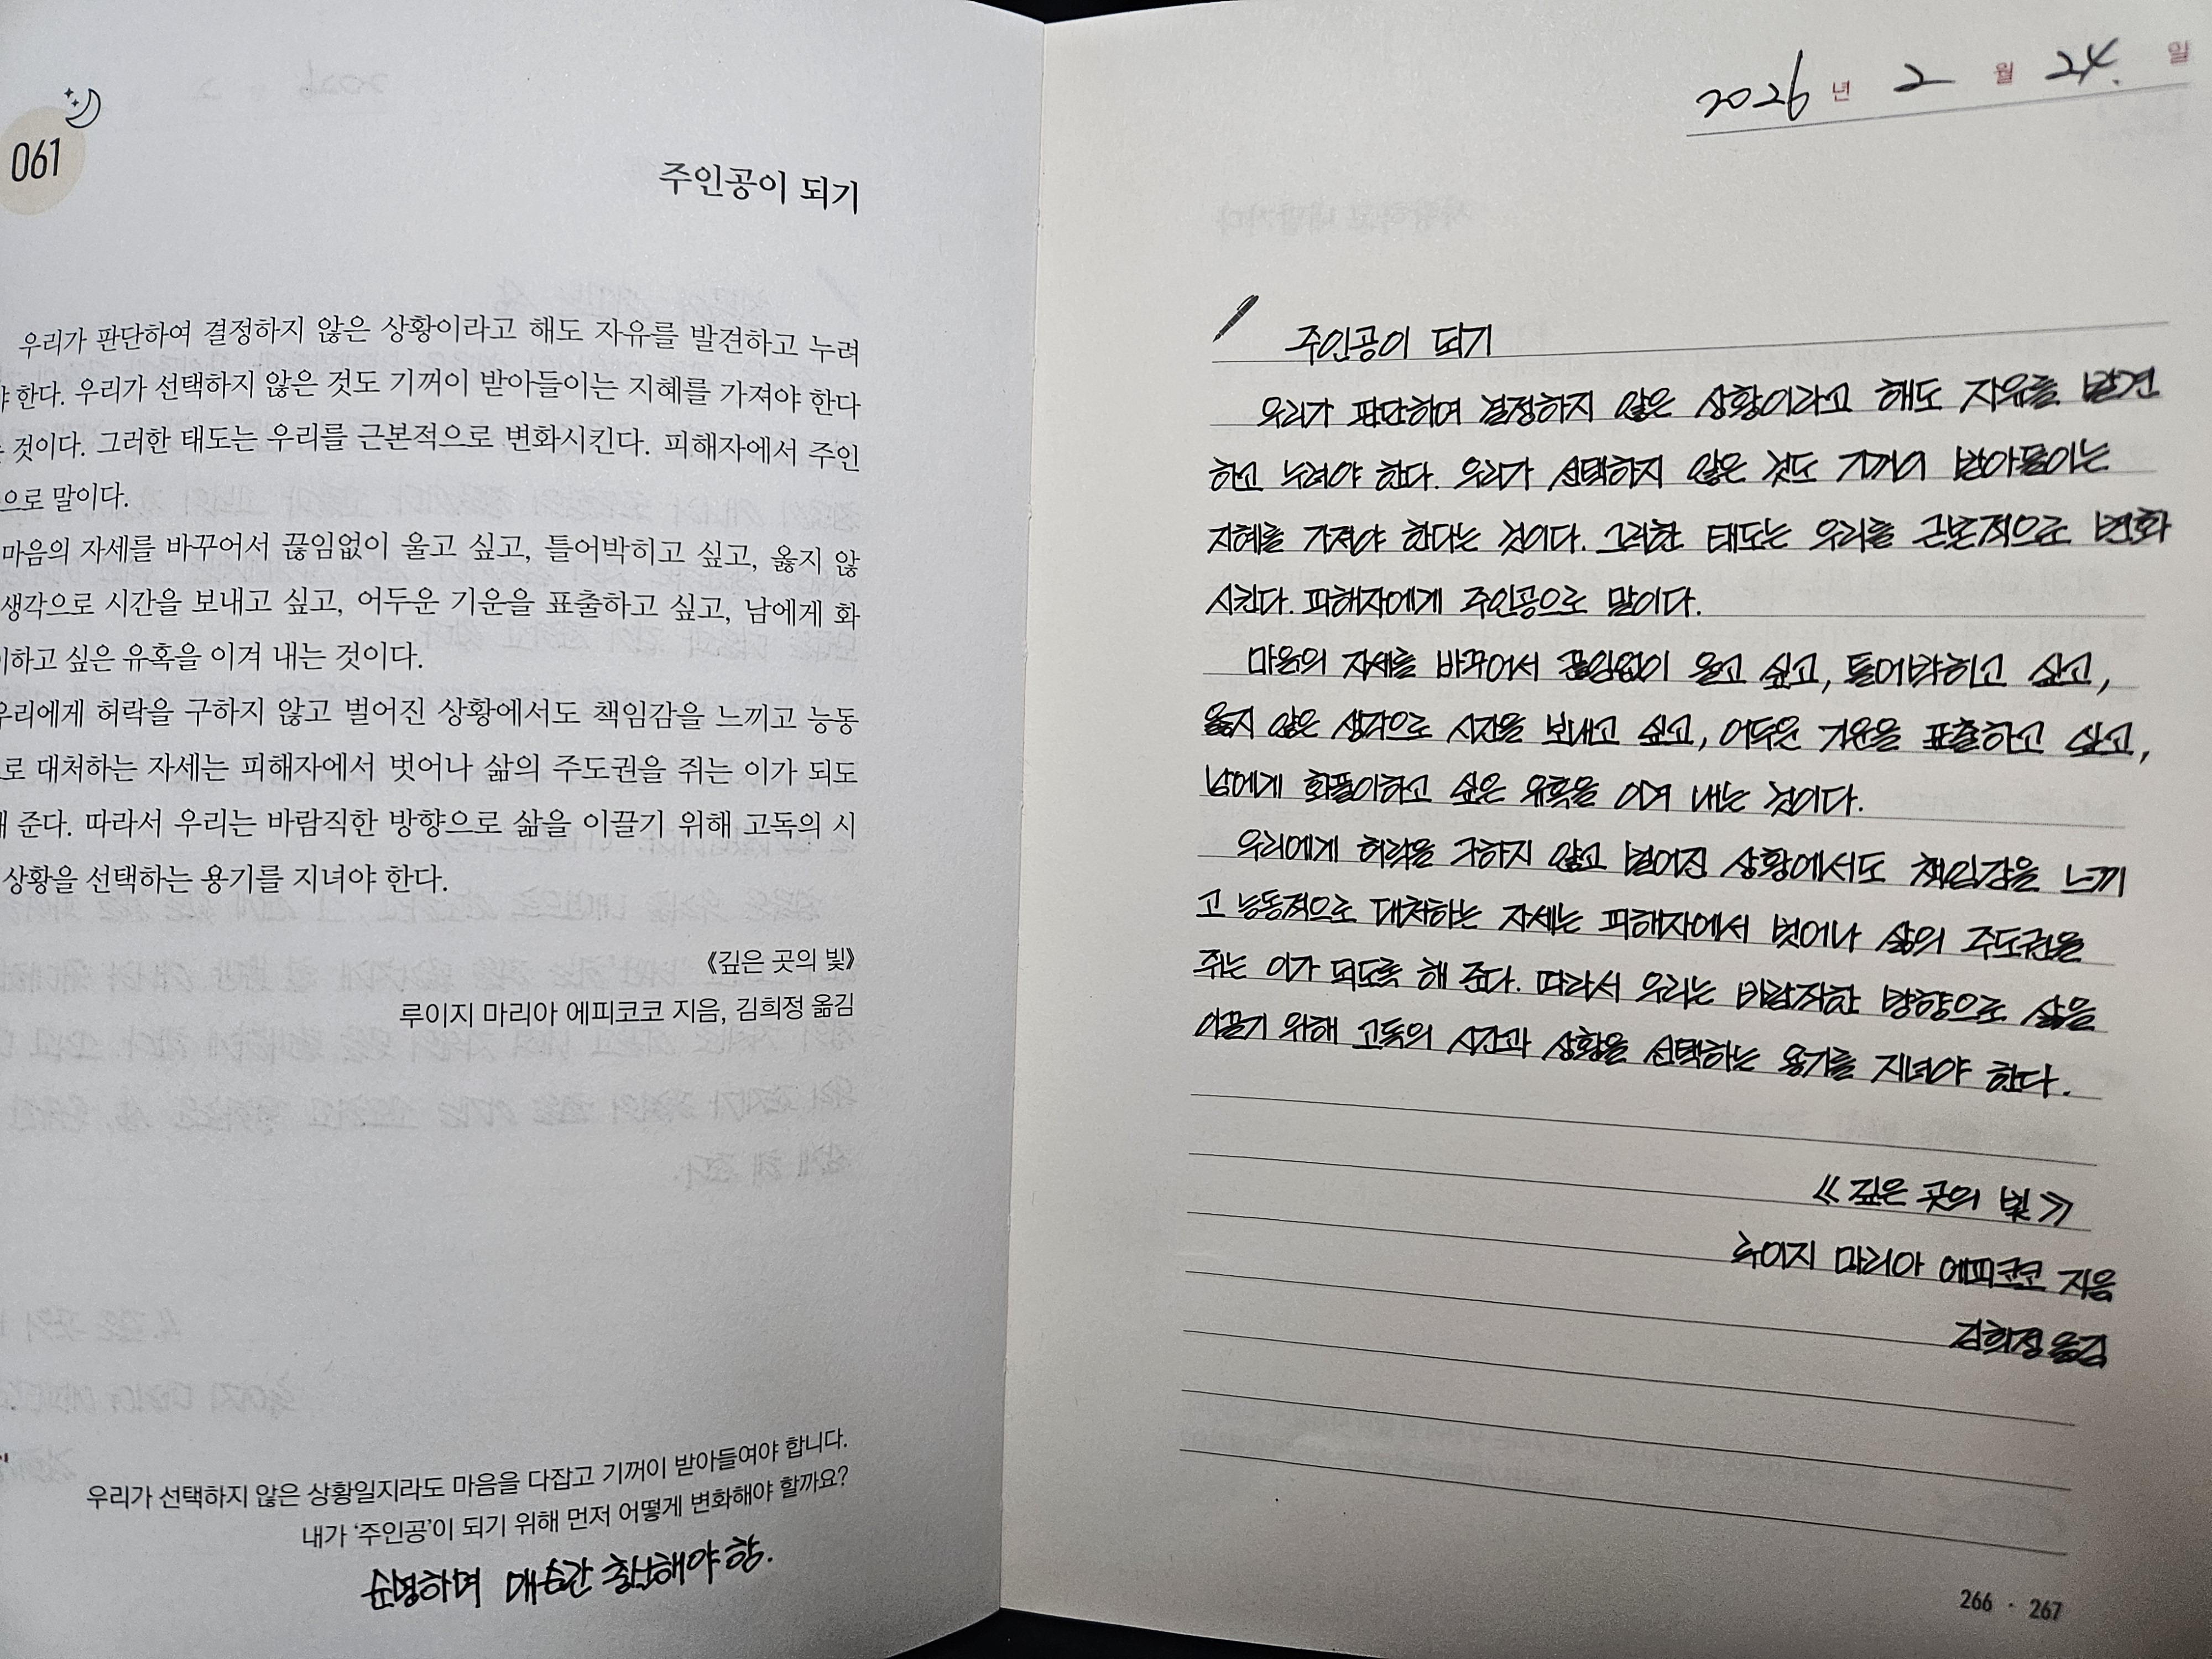 061
주인공이 되기
우리가 판단하여 결정하지 않은 상황이라고 해도 자유를 발견하고 누려
야 한다. 우리가 선택하지 않은 것도 기꺼이 받아들이는 지혜를 가져야 한다
는 것이다. 그러한 태도는 우리를 근본적으로 변화시킨다. 피해자에서 주인
으로 말이다.
마음의 자세를 바꾸어서 끊임없이 울고 싶고, 틀어박히고 싶고, 옳지 않
생각으로 시간을 보내고 싶고, 어두운 기운을 표출하고 싶고, 남에게 화
이하고 싶은 유혹을 이겨 내는 것이다.
우리에게 허락을 구하지 않고 벌어진 상황에서도 책임감을 느끼고 능동
로 대처하는 자세는 피해자에서 벗어나 삶의 주도권을 쥐는 이가 되도
해 준다. 따라서 우리는 바람직한 방향으로 삶을 이끌기 위해 고독의 시
상황을 선택하는 용기를 지녀야 한다.
《깊은 곳의 빛》
루이지 마리아 에피코코 지음, 김희정 옮김
우리가 선택하지 않은 상황일지라도 마음을 다잡고 기꺼이 받아들여야 합니다.
내가 ‘주인공’이 되기 위해 먼저 어떻게 변화해야 할까요?
순명하며 매순간 해야 함.
2026년 2월 24. 일
주인공이 되기
우리가 판단하여 결정하지 않은 상황이라고 해도 자유를 발견
하고 누려야 한다. 우리가 선택하지 않은 것도 기꺼이 받아들이는
지혜를 가져야 한다는 것이다. 그러한 태도는 우리를 근본적으로 변화
시킨다. 피해자에게 주인공으로 말이다.
마음의 자세를 바꾸어서 끊임없이 울고 싶고, 틀어박히고 싶고,
옳지 않은 생각으로 시간을 보내고 싶고, 어두운 기운을 표출하고 싶고,
남에게 화풀이하고 싶은 유혹을 이겨 내는 것이다.
우리에게 허락을 구하지 않고 벌어진 상황에서도 책임감을 느끼
고 능동적으로 대처하는 자세는 피해자에서 벗어나 삶의 주도권을
쥐는 이가 되도록 해 준다. 따라서 우리는 바람직한 방향으로 삶을
이끌기 위해 고독의 시간과 상황을 선택하는 용기를 지녀야 한다.
《깊은 곳의 빛》
루이지 마리아 에피코코 지음
김희정 옮김
266 · 267